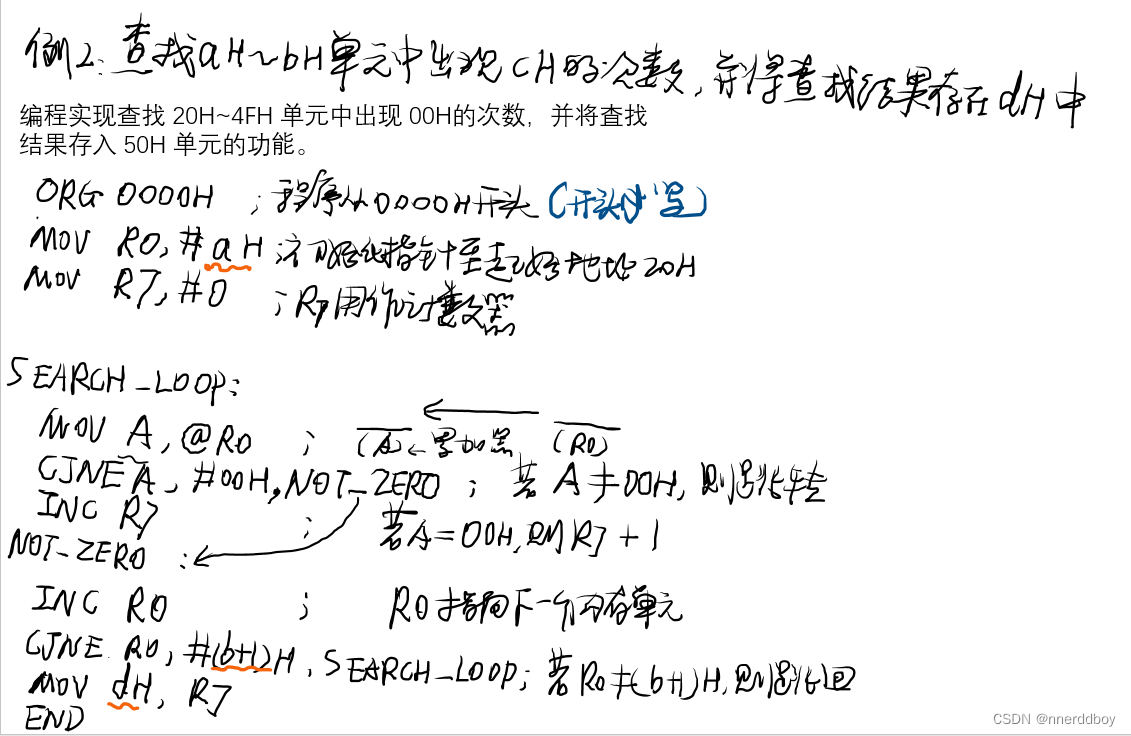 例2:查找aH~bH单元中出现CH的次数,并将查找结果存在dH中
编程实现查找 20H~4FH 单元中出现 00H的次数，并将查找
结果存入 50H 单元的功能。
ORG 0000H ;程序从0000H开头(开头必写)
MOV R0,#aH ;初始化指针至起始地址20H
MOV R7,#0 ;R7用作计数器
SEARCH_LOOP:
MOV A,@R0 ; (A)←累加器 (R0)
CJNE A,#00H,NOT_ZERO ; 若A≠00H,则跳转
INC R7 ; 若A=00H,则R7+1
NOT_ZERO :
INC R0 ; R0指向下一个内存单元
CJNE R0,#(b+1)H,SEARCH_LOOP;若R0≠(b+1)H,则跳回
MOV dH,R7
END
CSDN @nnerddboy